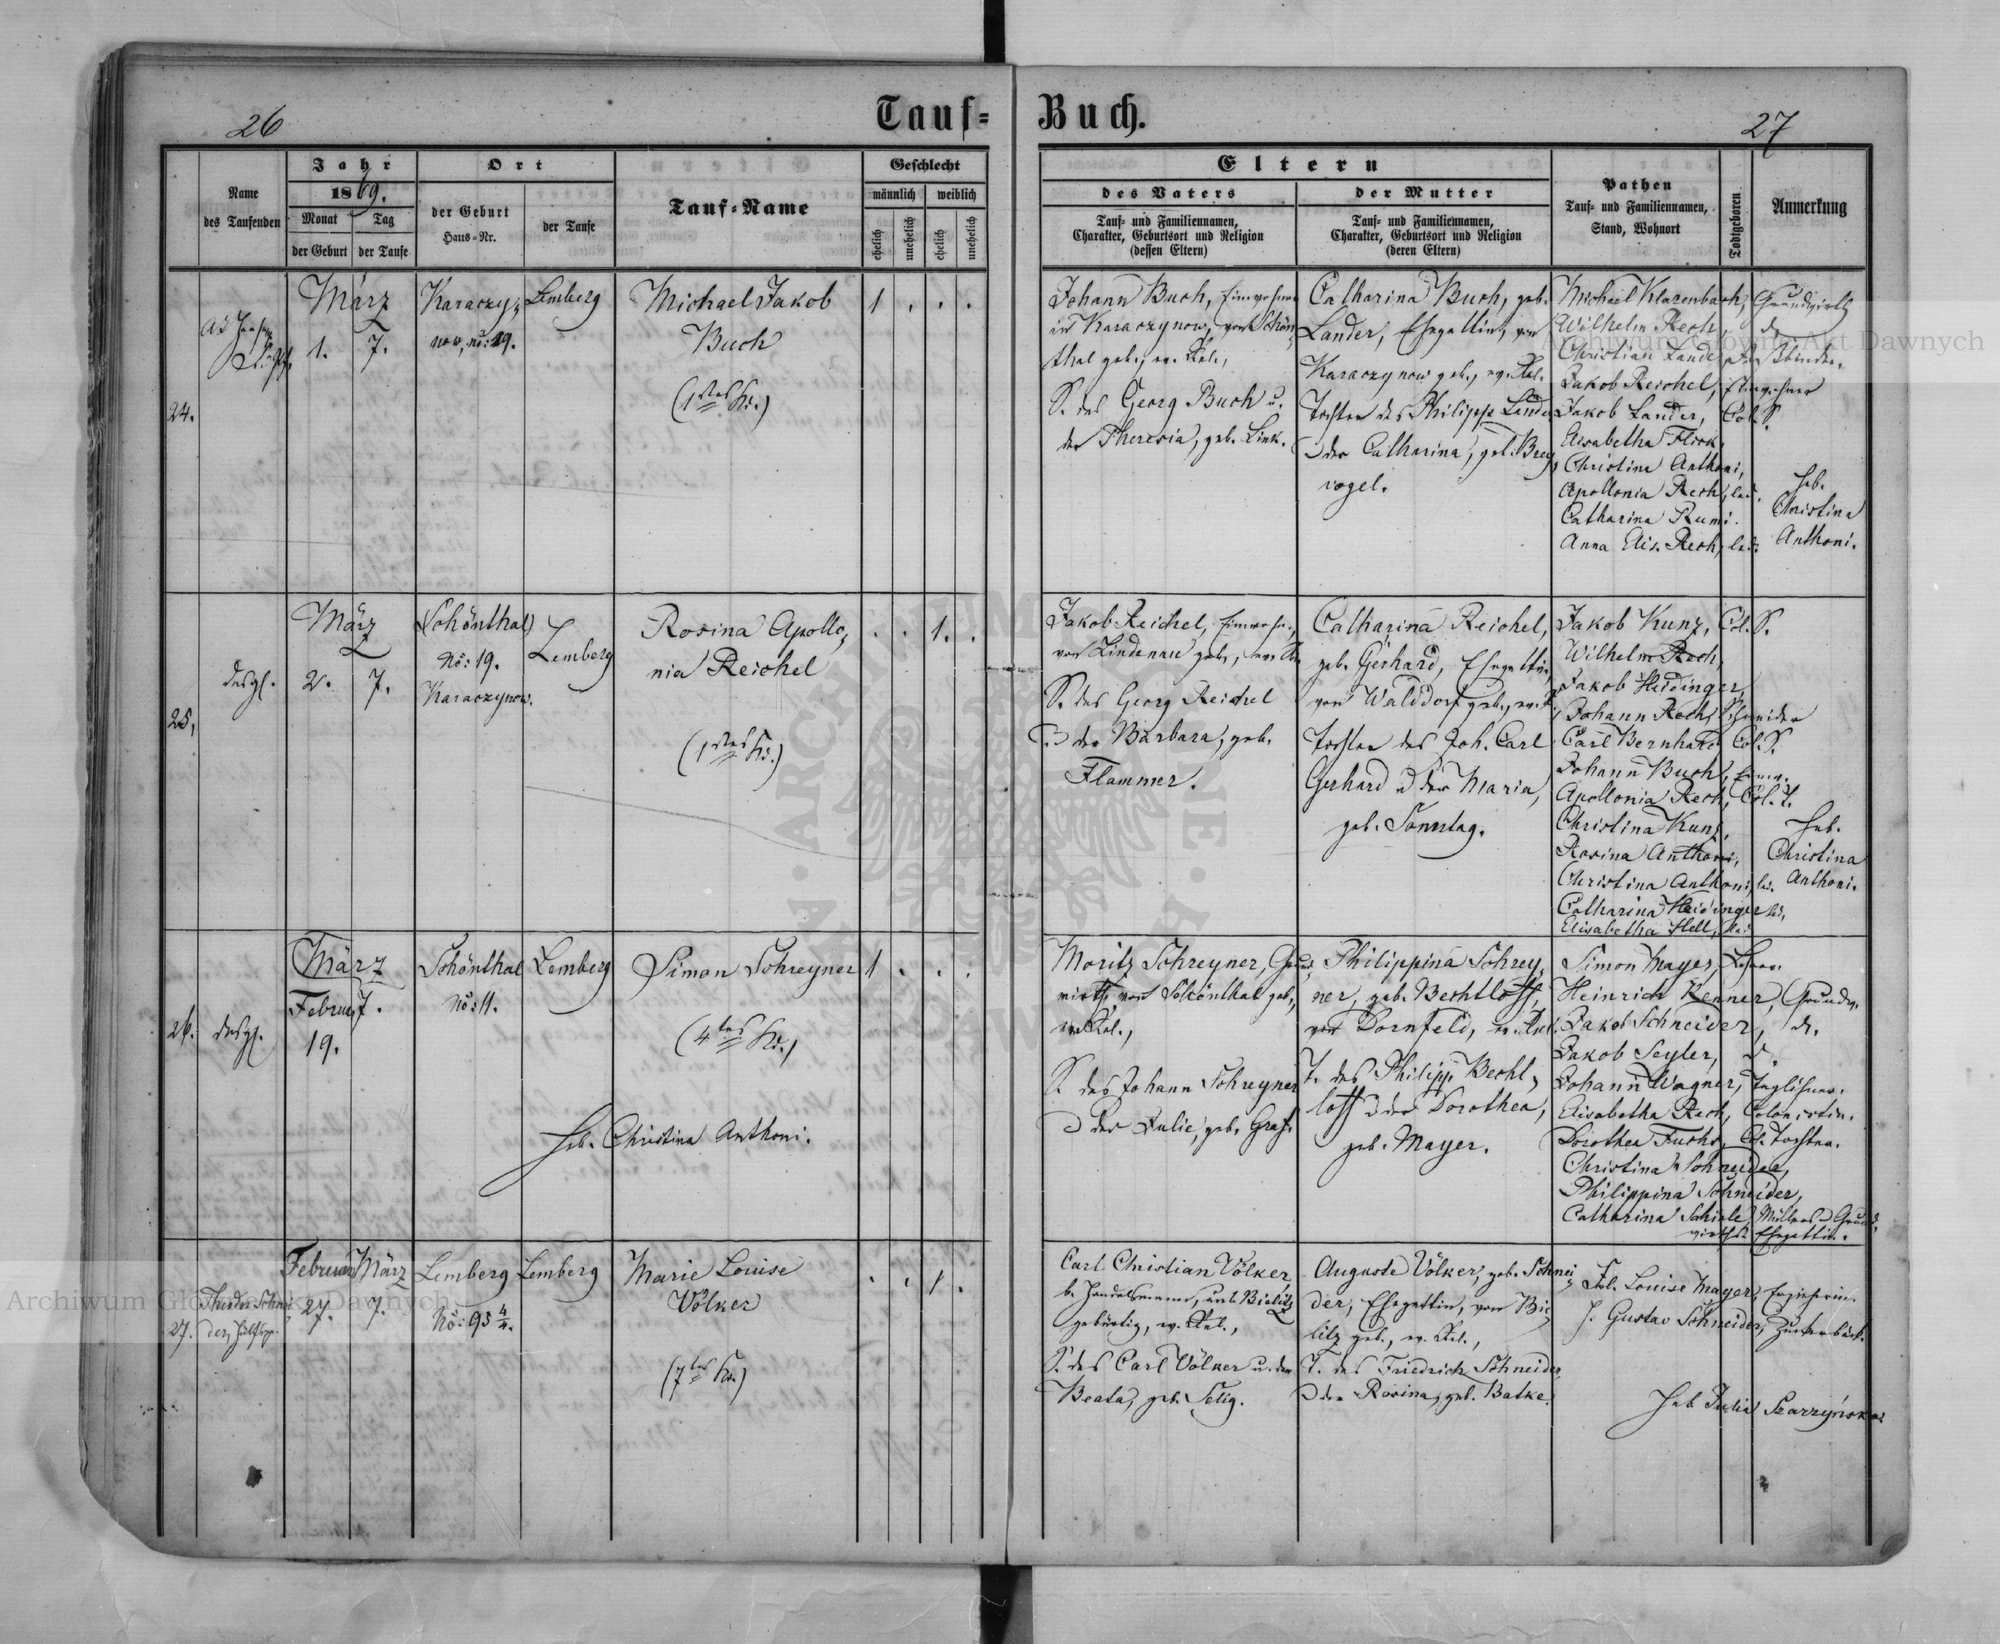 26
Tauf=
Buch.
27
Name
des Taufenden
Jahr
1869.
Monat
Tag
der Geburt
der Taufe
Ort
der Geburt
Haus=Nr.
der Taufe
Tauf=Name
Geschlecht
männlich
weiblich
ehelich
unehelich
ehelich
unehelich
Eltern
des Vaters
Tauf= und Familiennamen,
Charakter, Geburtsort und Religion
(dessen Eltern)
der Mutter
Tauf= und Familiennamen,
Charakter, Geburtsort und Religion
(deren Eltern)
Pathen
Tauf= und Familiennamen,
Stand, Wohnort
Todtgeboren
Anmerkung
24.
März
1. 7.
Karaczy=
now, no: 19.
Lemberg
Michael Jakob
Buch
(1tes K.)
1 . . .
Johann Buch, Einwohner
in Karaczynow, von Schön=
thal geb., ev. Rel.,
S. des Georg Buch u.
der Theresia, geb. Link.
Catharina Buch, geb.
Lander, Ehegattin, von
Karaczynow geb., ev. Rel.
Tochter des Philipp Lander
u der Catharina, geb. Brey=
vogel.
Michael Klarenbach, Grundwirth
Wilhelm Rech,
Christian Lande
Jakob Reichel, Einwohner
Jakob Lander, Col. S.
Elisabetha Flick,
Christina Anthoni,
Apollonia Rech, led.
Catharina Rumi.
Anna Elis. Rech, led.
Heb.
Christina
Anthoni.
25,
desgl.
März
2. 7.
Schönthal
No: 19.
Karaczynow.
Lemberg
Rosina Apollo=
nia Reichel
(1tes K.)
. . 1. .
Jakob Reichel, Einwohn.,
von Lindenau geb., ev. Rel.
S. des Georg Reichel
u der Barbara, geb.
Flammer.
Catharina Reichel,
geb. Gerhard, Ehegattin,
von Walddorf geb., ev. R.
Tochter des Joh. Carl
Gerhard u der Maria,
geb. Sonntag.
Jakob Kunz, Col. S.
Wilhelm Rech,
Jakob Heidinger,
Johann Rech, Schneider
Carl Bernhard Col. S.
Johann Buch, Einw.
Apollonia Rech, Col. T.
Christina Kunz,
Rosina Anthoni,
Christina Anthoni, led.
Catharina Heidinger led,
Elisabetha Hell, led.
Heb.
Christina
Anthoni.
26.
desgl.
März
Februar 7.
19.
Schönthal
No: 11.
Lemberg
Simon Schreyner
(4tes K.)
1 . . .
Heb. Christina Anthoni.
Moritz Schreyner, Grund=
wirth, von Schönthal geb.,
ev. Rel.,
S. des Johann Schreyner
u der Julie, geb. Graf.
Philippina Schrey=
ner, geb. Bechtloff,
von Dornfeld, ev. Rel.
T. des Philipp Becht=
loff u der Dorothea,
geb. Mayer.
Simon Mayer, Lehrer.
Heinrich Kenner, Grundw.
Jakob Schneider, dt.
Jakob Seyler,
Johann Wagner, Taglöhner.
Elisabetha Rech, Colonistin.
Dorothea Fuchs, Col. Tochter.
Christina Schneider,
Philippina Schneider,
Catharina Schiele, Müllers u Grund=
wirths Ehegattin.
27.
Februar März
27. 7.
Lemberg
No: 93 4/4.
Lemberg
Marie Louise
Völker
(7tes K.)
. . 1 .
Carl Christian Völker,
b. Handelsmann, aus Bielitz
gebürtig, ev. Rel.,
S. des Carl Völker u. der
Beata, geb. Selig.
Auguste Völker, geb. Schnei=
der, Ehegattin, von Bie=
litz geb., ev. Rel.,
T. des Friedrich Schneider,
u der Rosina, geb. Batke.
Frl. Louise Mayer, Erzieherin.
H. Gustav Schneider, Zuckerbäck.
Heb Julia Szarzyńska
Archiwum Główne Akt Dawnych
Archiwum Główne Akt Dawnych